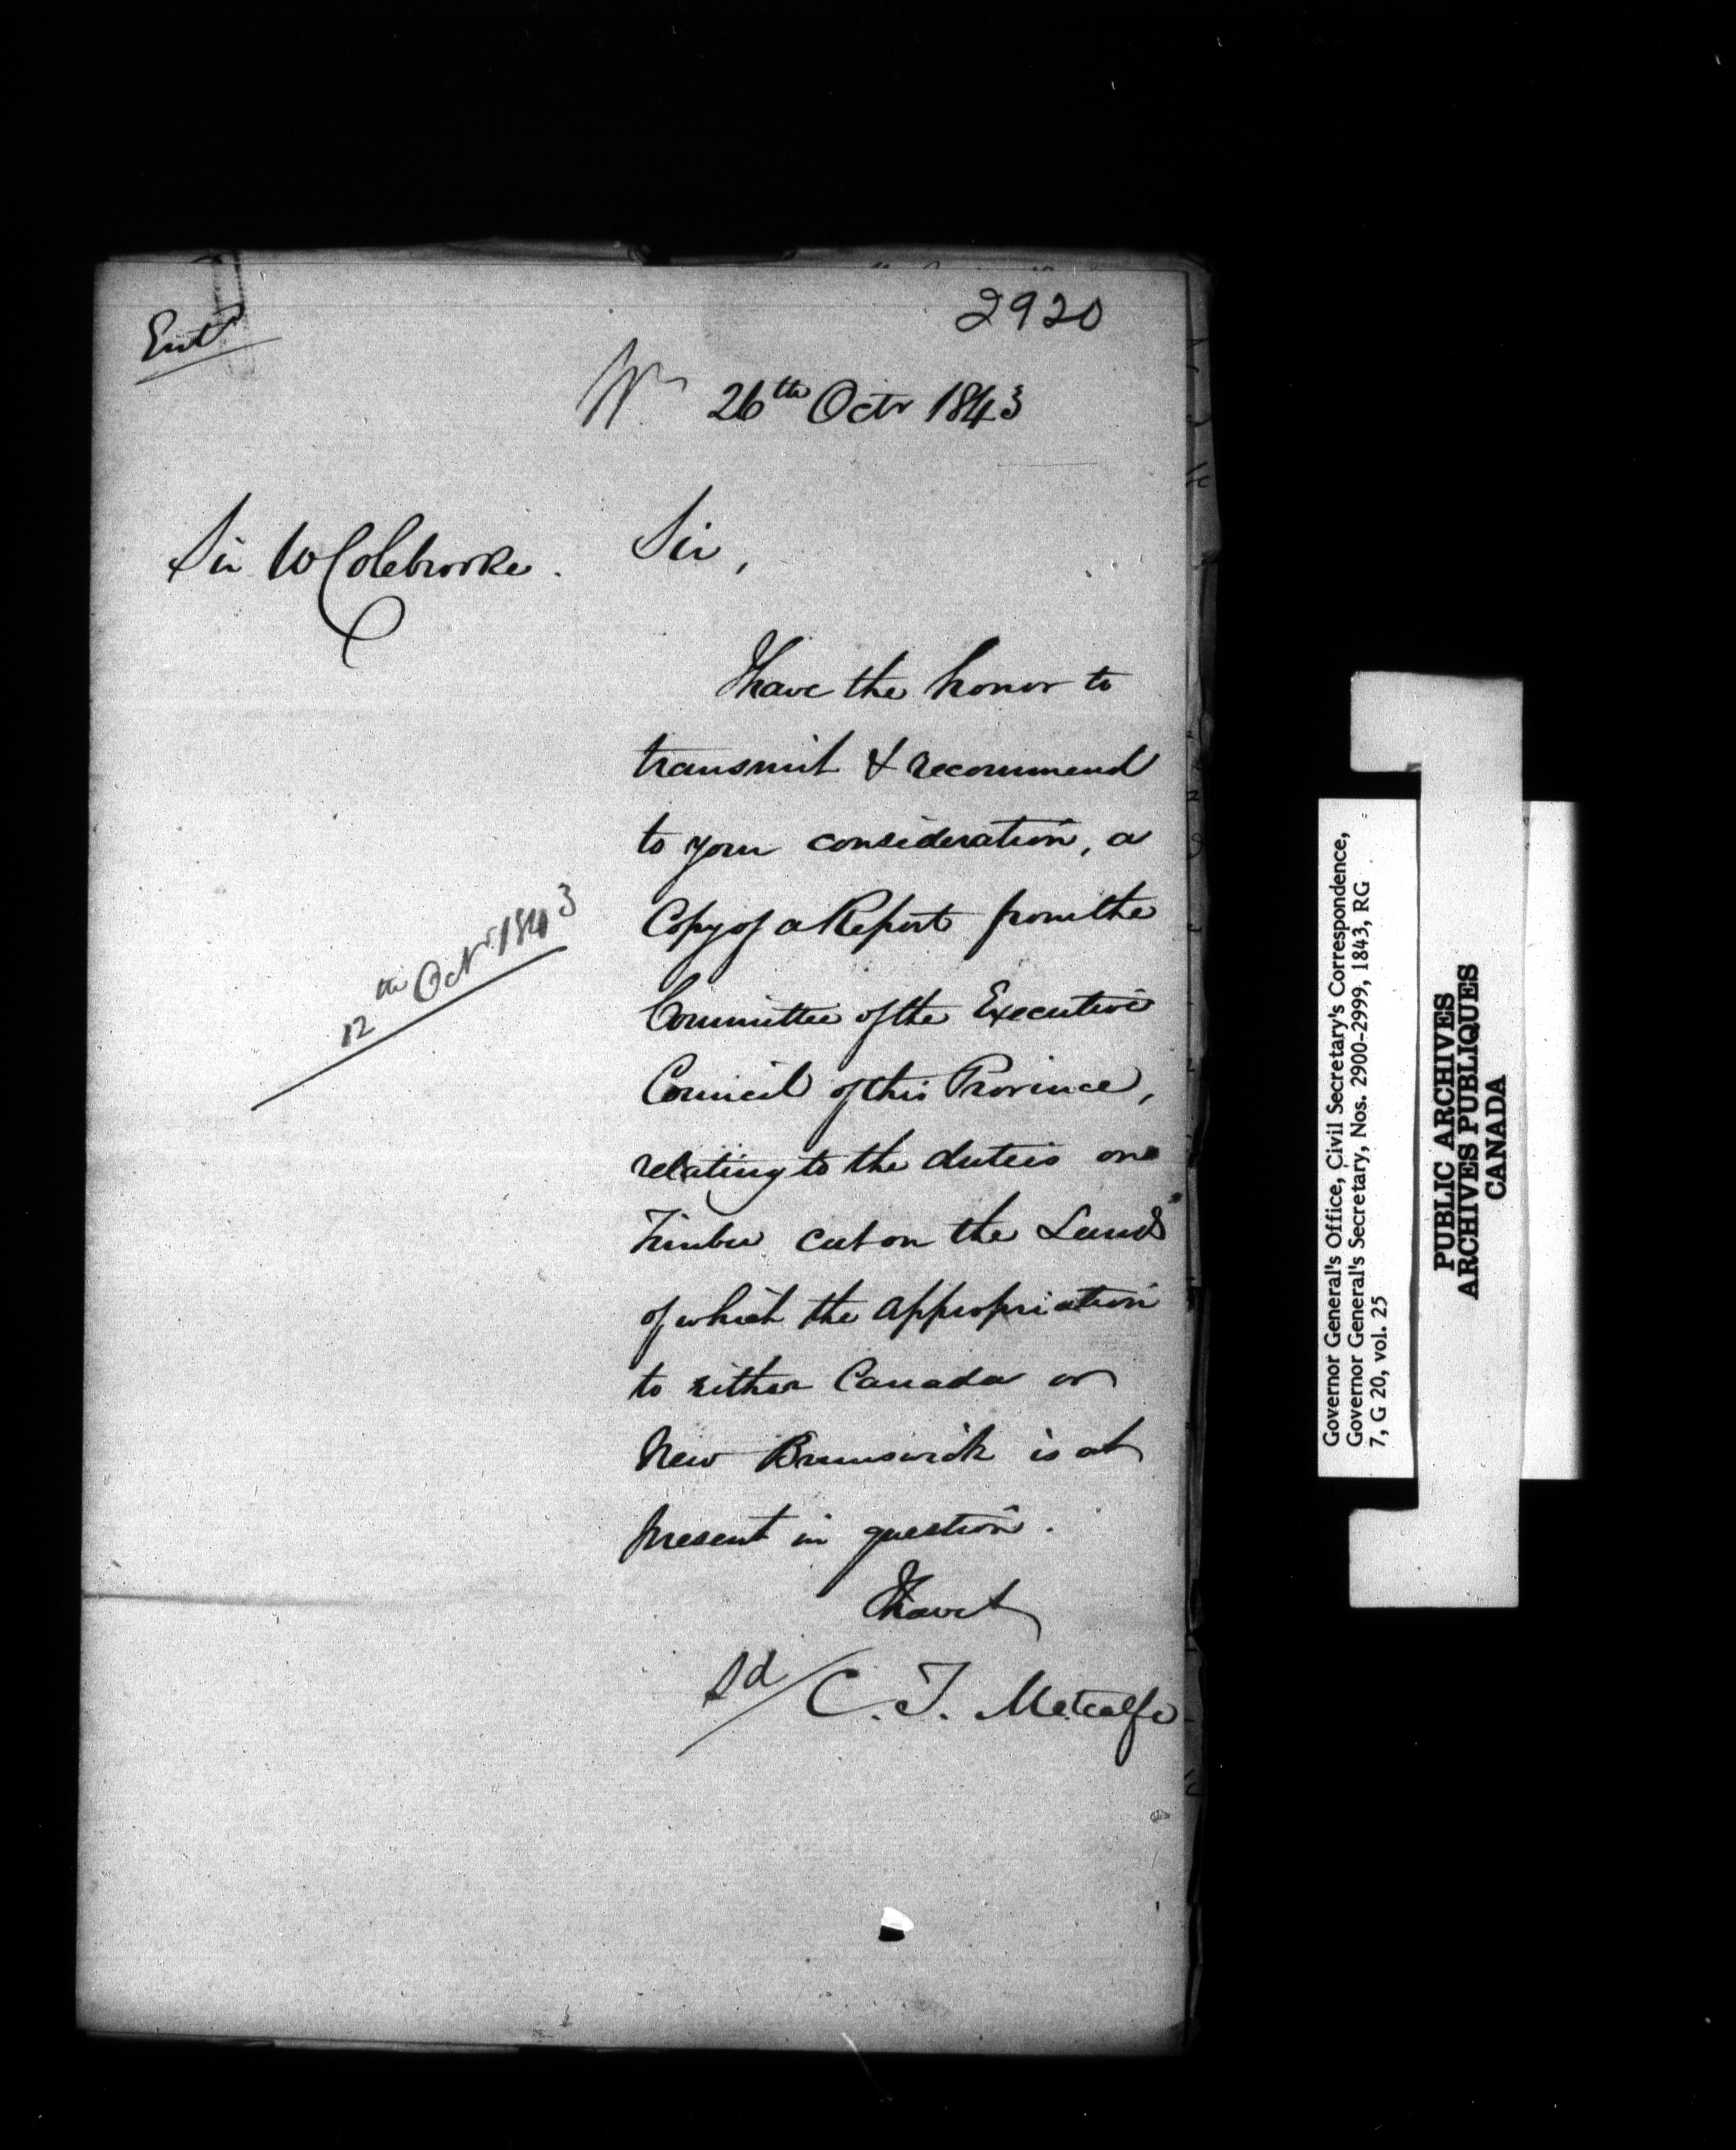 2920
Entd
26th Octr 1843
Sir W Colebrooke.
Sir,
I have the honor to
transmit & recommend
to your consideration, a
Copy of a Report from the
Committee of the Executive
Council of this Province,
relating to the duties on
Timber cut on the Lands
of which the appropriation
to either Canada or
New Brunswick is at
present in question.
12th Octr 1843
I have &
Sd/ C. T. Metcalfe
Governor General's Office, Civil Secretary's Correspondence,
Governor General's Secretary, Nos. 2900-2999, 1843, RG
7, G 20, vol. 25
PUBLIC ARCHIVES
ARCHIVES PUBLIQUES
CANADA